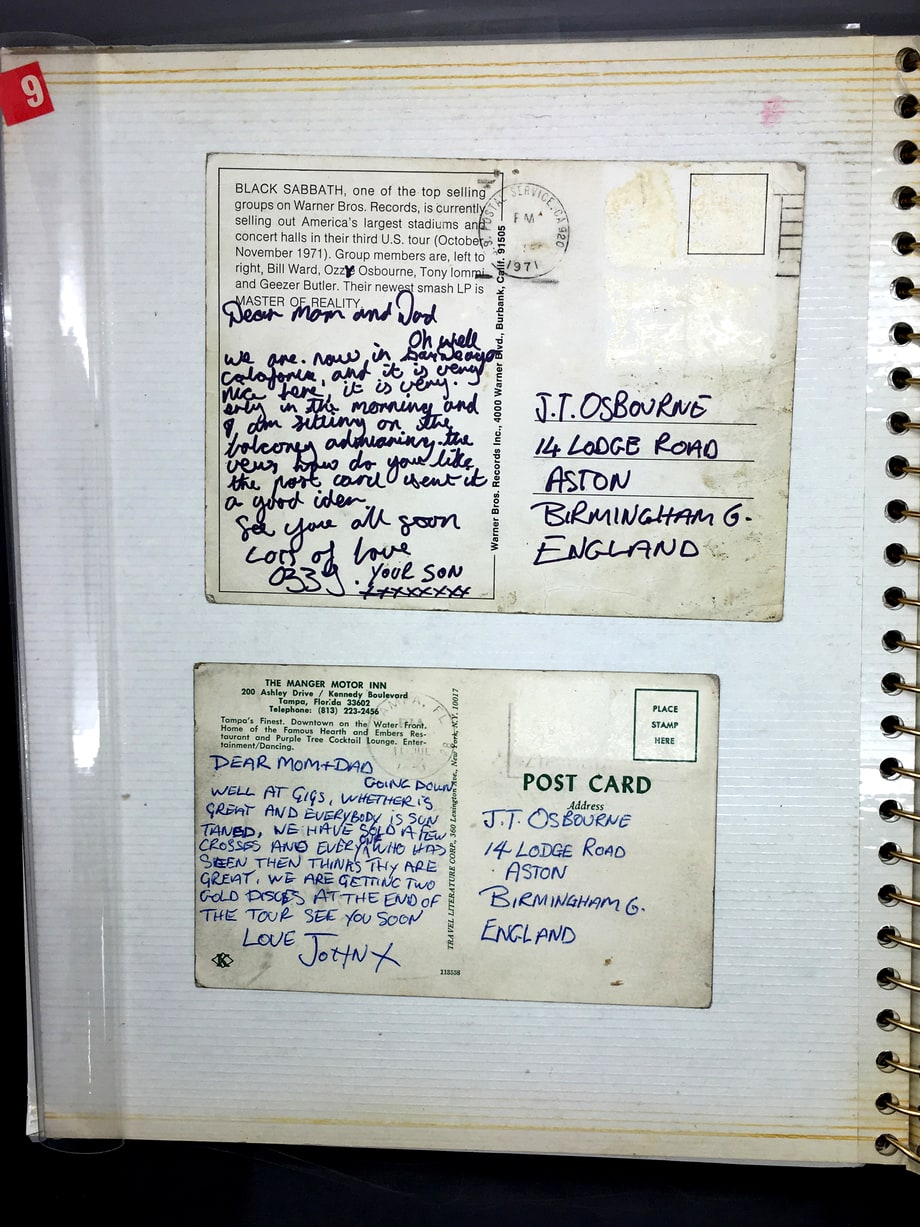 9
BLACK SABBATH, one of the top selling
groups on Warner Bros. Records, is currently
selling out America's largest stadiums and
concert halls in their third U.S. tour (October-
November 1971). Group members are, left to
right, Bill Ward, Ozzy Osbourne, Tony Iommi
and Geezer Butler. Their newest smash LP is
MASTER OF REALITY.
Dear Mom and Dad
Oh well
we are. now in
calafornia, and it is very
nice here, it is very.
erly in the morning and
I am sitting on the
balconey admiaring the
veus how do you like
the post card isent it
a good idea
See you all soon
Lots of love
OZZY. YOUR SON
xxxxxxxx
Warner Bros. Records Inc., 4000 Warner Blvd., Burbank, Calif. 91505
POSTAL SERVICE, CA 920
PM
1971
J.T. OSBOURNE
14 LODGE ROAD
ASTON
BIRMINGHAM 6.
ENGLAND
THE MANGER MOTOR INN
200 Ashley Drive / Kennedy Boulevard
Tampa, Florida 33602
Telephone: (813) 223-2456
Tampa's Finest. Downtown on the Water Front.
Home of the Famous Hearth and Embers Res-
taurant and Purple Tree Cocktail Lounge. Enter-
tainment/Dancing.
DEAR MOM+DAD
GOING DOWN
WELL AT GIGS, WHETHER IS
GREAT AND EVERYBODY IS SUN
TANED, WE HAVE SOLD A FEW
CROSSES AND EVERY ONE WHO HAS
SEEN THEN THINKS THY ARE
GREAT, WE ARE GETTING TWO
GOLD DISCS AT THE END OF
THE TOUR SEE YOU SOON
LOVE JOHN X
K
TRAVEL LITERATURE CORP., 360 Lexington Ave., New York, N.Y. 10017
118558
TAMPA, FL
PLACE
STAMP
HERE
POST CARD
Address
J.T. OSBOURNE
14 LODGE ROAD
ASTON
BIRMINGHAM 6.
ENGLAND